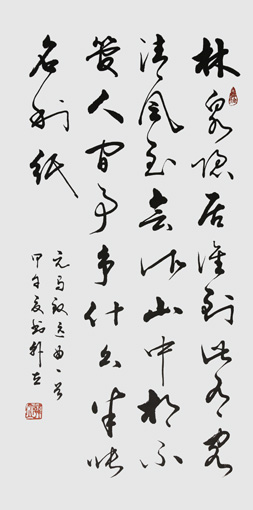 林泉隐居谁到此有客
清风至会作山中相不
管人间事争什么半张
名利纸
元马致远曲一首
甲午夏